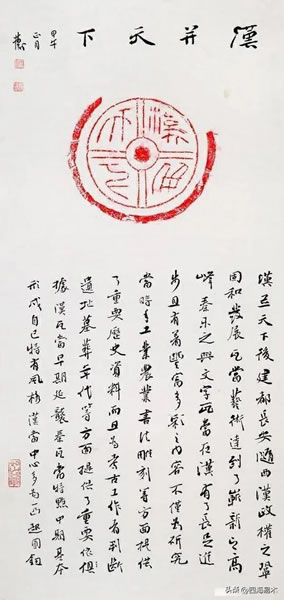 漢并天下
甲午
正月
漢并天下
漢并天下後建都長安隨西漢政權之鞏
固和發展瓦當藝術達到了嶄新之高
峰秦末之興文字瓦當在漢有了長足進
步且有着豐富多彩之內容不僅為研究
當時手工業農業書法雕刻等方面提供
了重要歷史資料而且為考古工作者判斷
遺址墓葬年代等方面提供了重要依
據漢瓦當早期延襲秦瓦當特點中期基本
形成自己特有風格漢當中心多為凸起圓鈕
头条